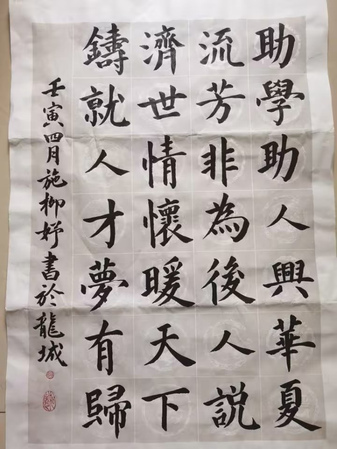 助學助人興華夏
流芳非為後人説
濟世情懷暖天下
鑄就人才夢有歸
壬寅四月施柳妤書於龍城